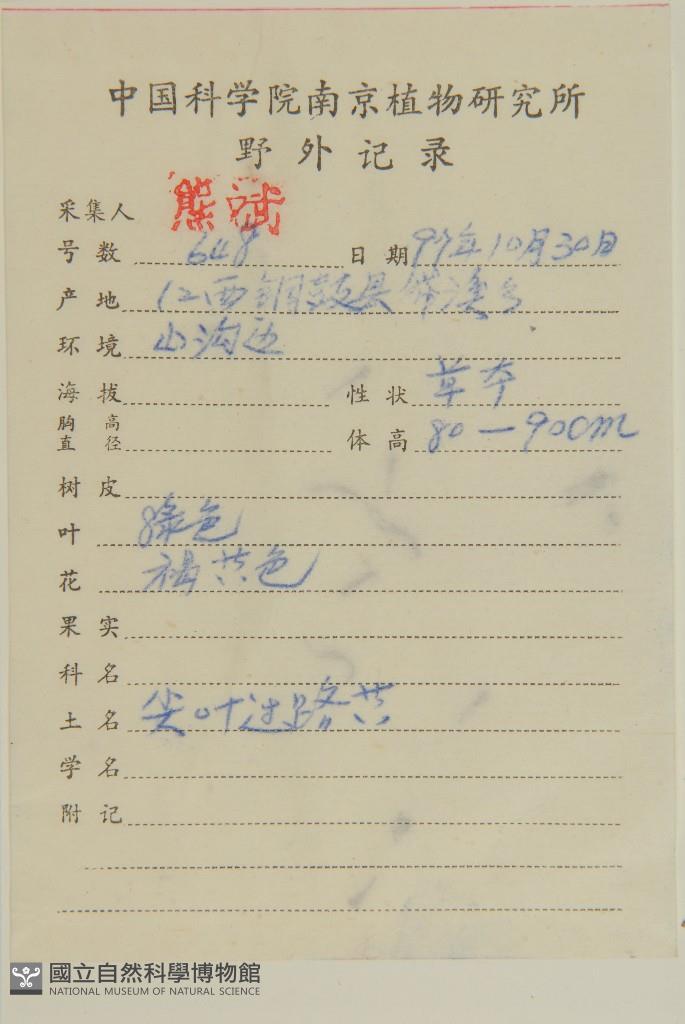 中国科学院南京植物研究所
野外记录
采集人 熊斌
号数 648 日期 97年10月30日
产地 江西铜鼓县带溪乡
环境 山沟边
海拔 性状 草本
胸高直径 体高 80—90cm
树皮
叶 绿色
花 褐黄色
果实
科名
土名 尖叶过路黄
学名
附记
國立自然科學博物館
NATIONAL MUSEUM OF NATURAL SCIENCE